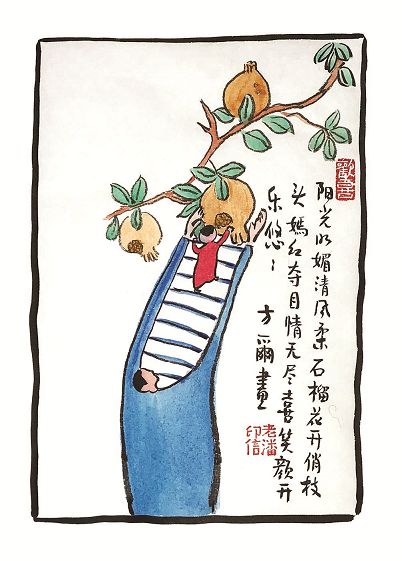 歡喜
阳光明媚清风柔石榴花开俏枝
头嫣红夺目情无尽喜笑颜开
乐悠々
方爾畫
老潘
印信